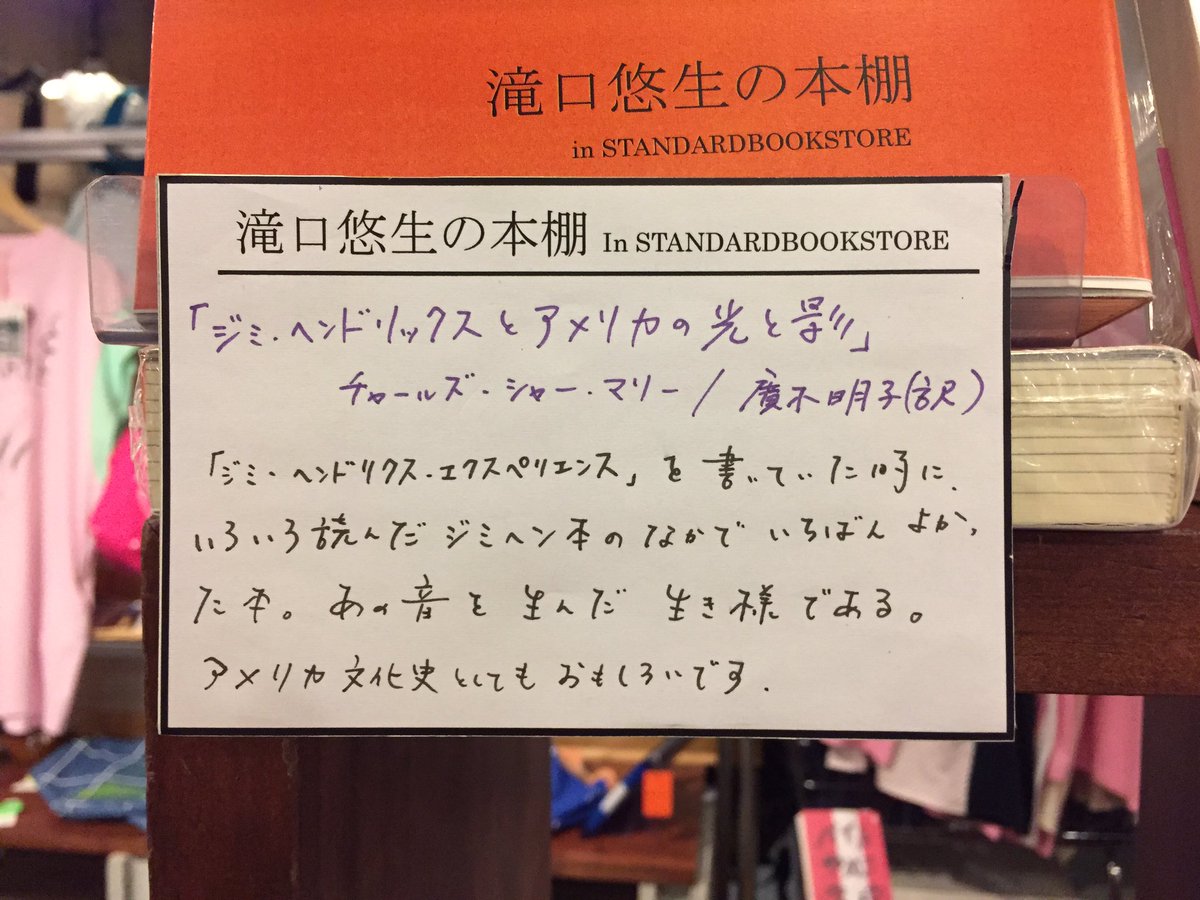 滝口悠生の本棚
in STANDARDBOOKSTORE
滝口悠生の本棚 In STANDARDBOOKSTORE
「ジミ・ヘンドリックスとアメリカの光と影」
チャールズ・シャー・マリー / 廣木明子(訳)
「ジミ・ヘンドリクス・エクスペリエンス」を書いていた時に、
いろいろ読んだジミヘン本のなかでいちばんよかっ
た本。あの音を生んだ生き様である。
アメリカ文化史としてもおもしろいです.